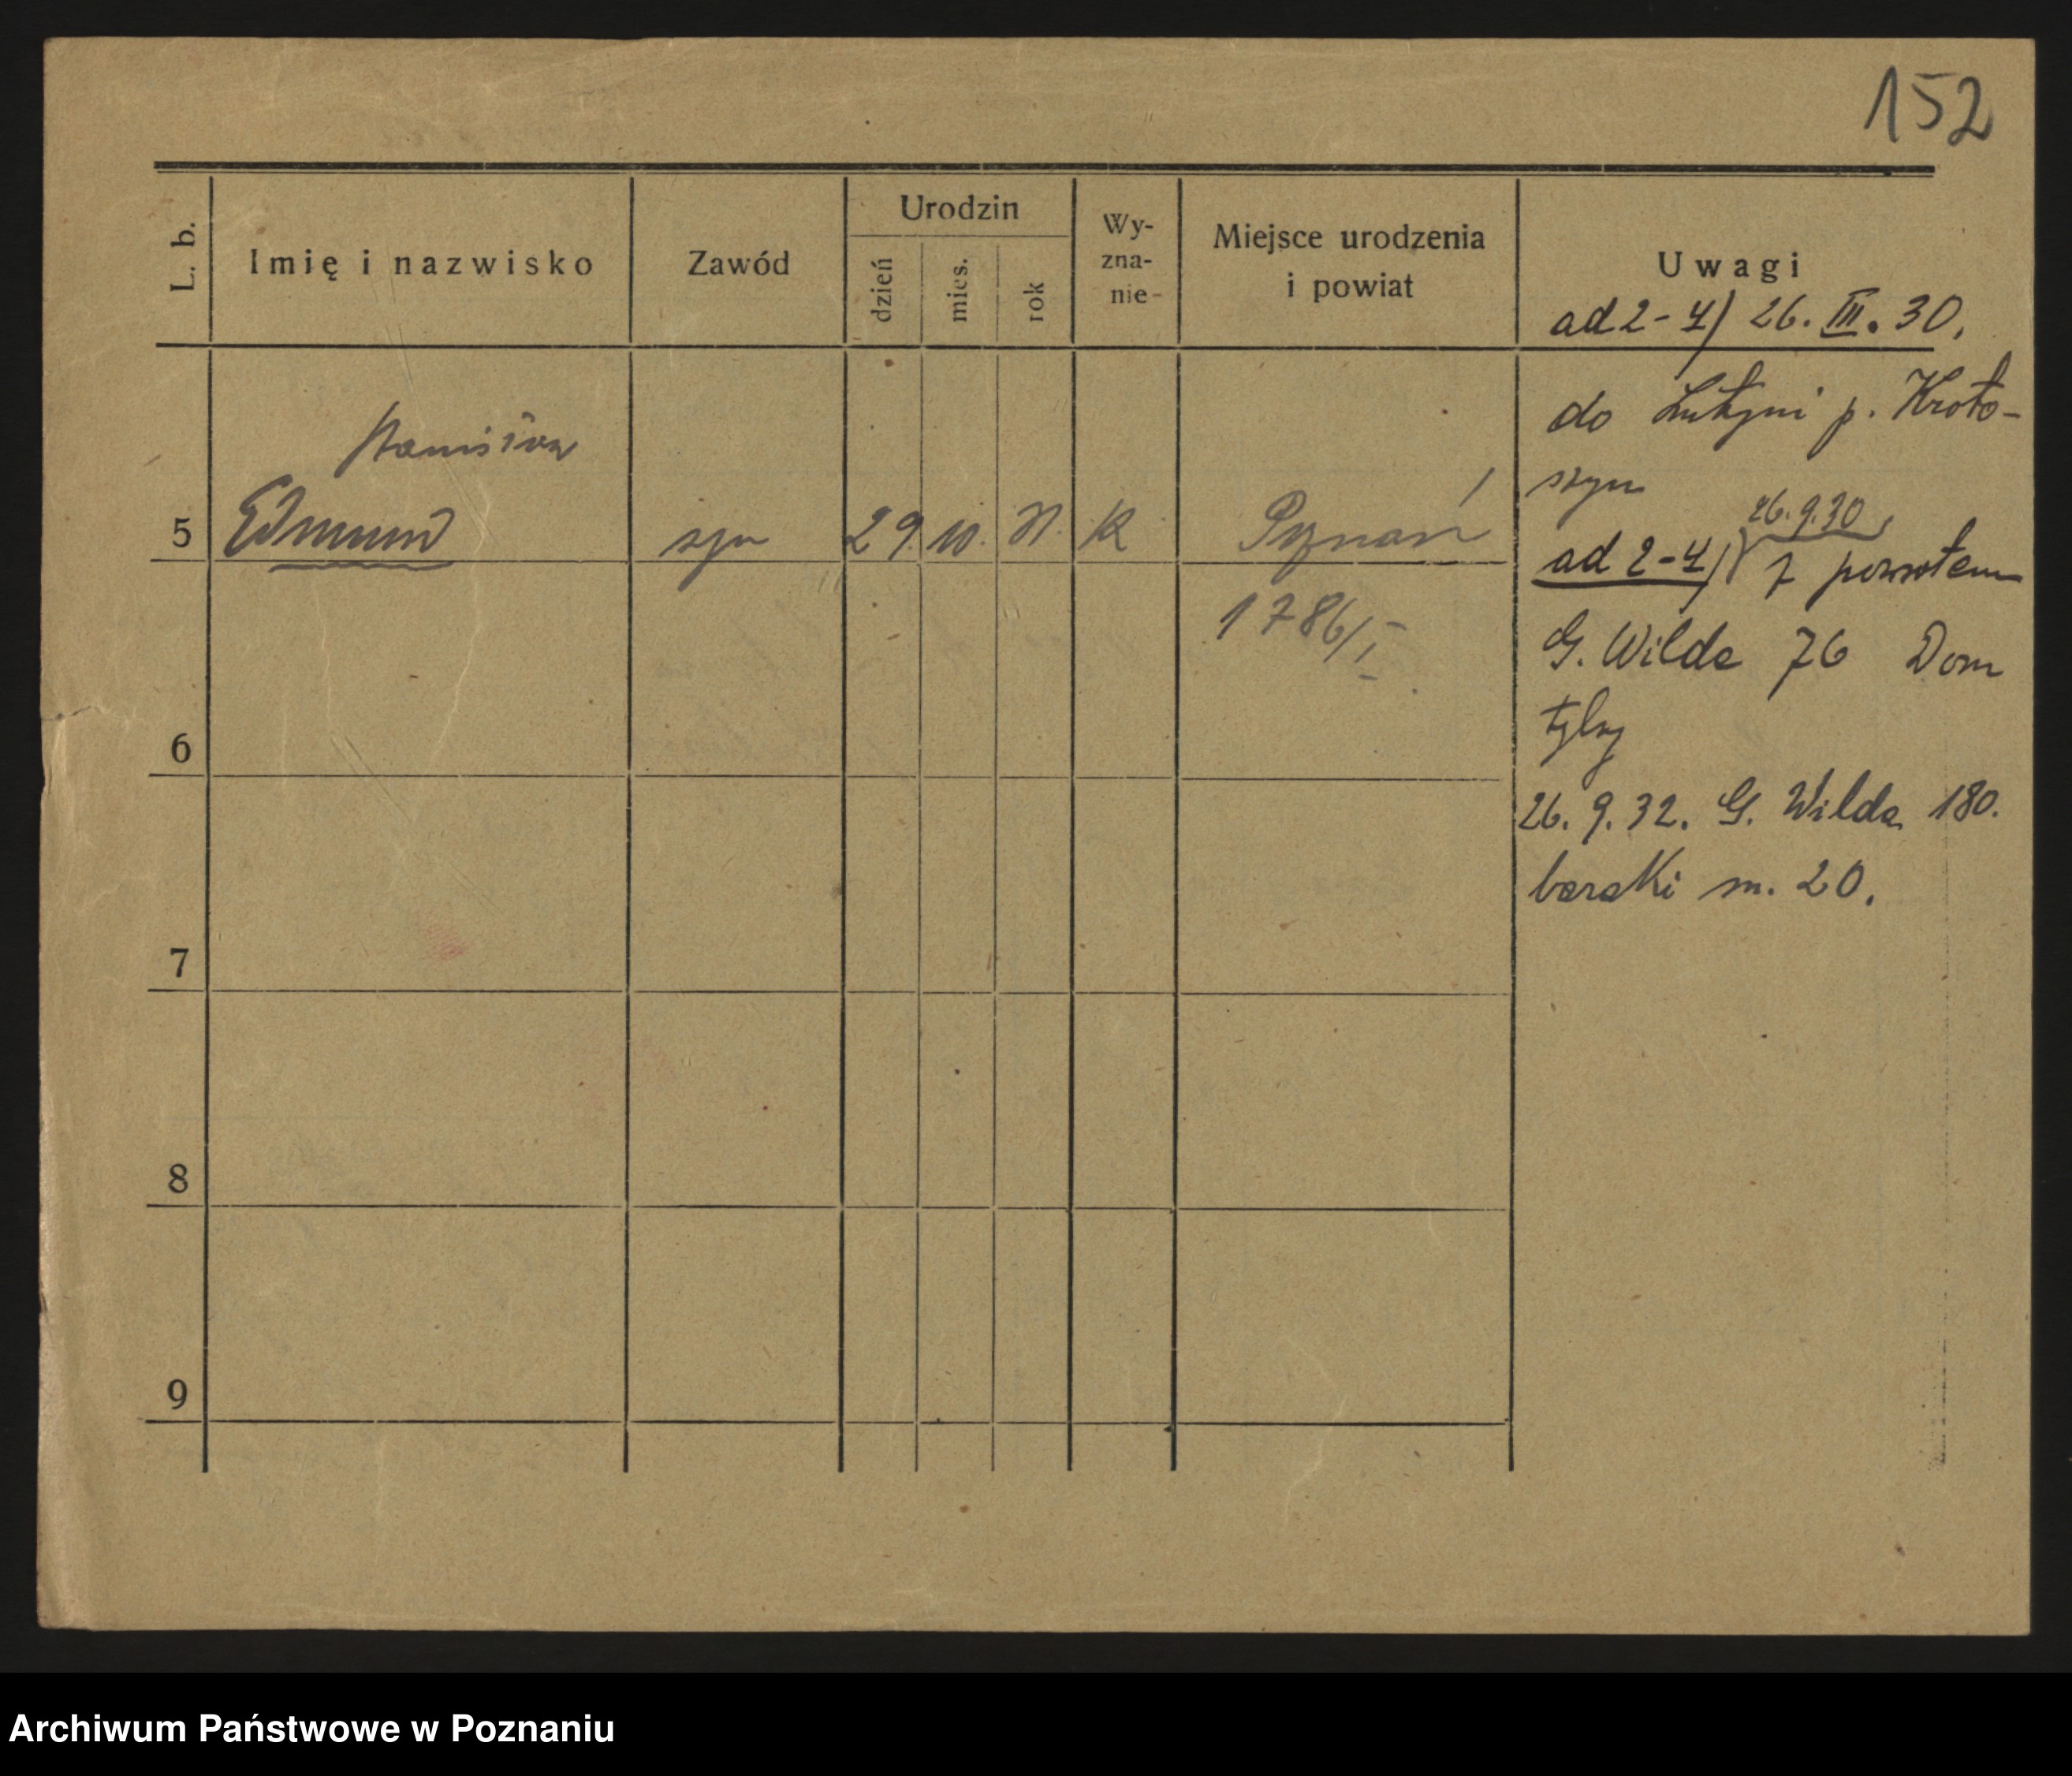 152
L. b.
Imię i nazwisko
Zawód
Urodzin
dzień
mies.
rok
Wy-
zna-
nie
Miejsce urodzenia
i powiat
Uwagi
ad 2-4) 26. III. 30.
do Lutyni p. Kroto-
szyn
Stanisław
5 Edmund syn 29. 10. K Poznań
1786/I
26.9.30
ad 2-4) z powrotem
G. Wilda 76 Dom
tylny
26. 9. 32. G. Wilda 180.
baraki m. 20.
6
7
8
9
Archiwum Państwowe w Poznaniu